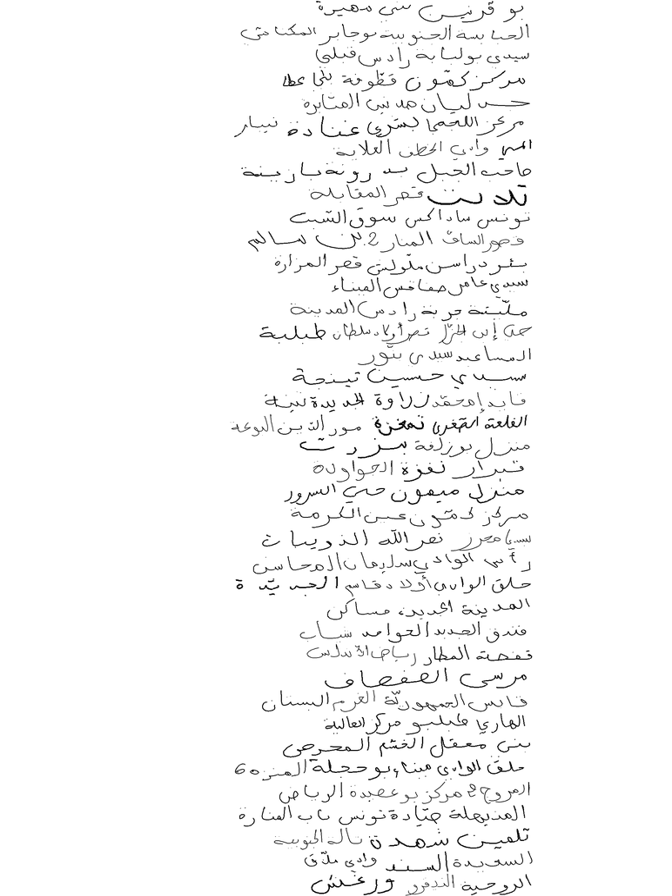 بو قرنين بني مهيرة
الحبابسة الجنوبية بوجابر المكناسي
سيدي بولبابة رادس قبلي
مركز كمون قطوفة
حي ليان مدنين المتابرة
مركز اللجمي بشري عنادة نيبار
وادي الخطف العلاية
صاحب الجبل بازينة
تلابت قصر المقابلة
تونس ساداكس سوق السبت
قصور الساف المنار 2 بن سالم
بئر دراسن ملولش قصر المزارة
سيدي عامر صفاقس الميناء
مليتة جربة رادس المدينة
قصر أولاد سلطان طبلبة
المساعيد سيدي بنور
سيدي حسين تينجة
قايد إمحمد زراوة الجديدة
القلعة الصغرى تمغزة نور الدين
منزل بوزلفة بنزرت
نفزة الجواودة
منزل ميمون حي السرور
مركز كمون عين الكرمة
سيدي محرز نصر الله الذويبات
رأس الوادي سليمان المحاسن
حلق الوادي أولاد قاسم الجديدة
المدينة الجديدة مساكن
فندق الجديد العوامد شباب
قفصة المطار رياض الأندلس
مرسى الصفصاف
قابس الجمهورية القرم البستان
الهاري طبلبو مركز العالية
بني معقل الختم المحرص
حلق الوادي ميناء بوحجلة المنزه 6
المروج 2 مركز بوعصيدة الرياض
المنيهلة صيادة تونس باب المنارة
تلمين شهدة تالة الجنوبية
السعيدة السند وادي ملاق
الروحية ورغش